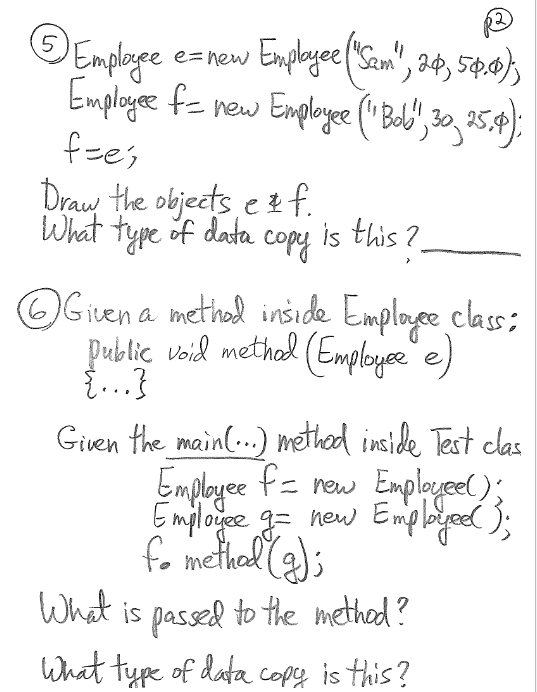 p2
5 Employee e=new Employee("Sam", 2φ, 5φ.φ);
Employee f= new Employee("Bob", 30, 25.φ);
f=e;
Draw the objects e & f.
What type of data copy is this? ________
6 Given a method inside Employee class:
public void method (Employee e)
{...}
Given the main(...) method inside Test clas
Employee f= new Employee();
Employee g= new Employee();
f. method(g);
What is passed to the method?
What type of data copy is this?